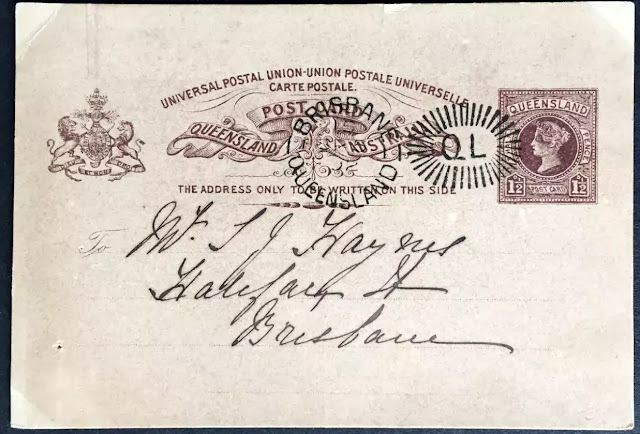 UNIVERSAL POSTAL UNION-UNION POSTALE UNIVERSELLE
CARTE POSTALE.
POST CARD
QUEENSLAND AUSTRALIA
BRISBANE
QUEENSLAND
QL
QUEENSLAND
1½ POST CARD 1½
THE ADDRESS ONLY TO BE WRITTEN ON THIS SIDE
To Mr. S J Haynes
Halifax St
Brisbane